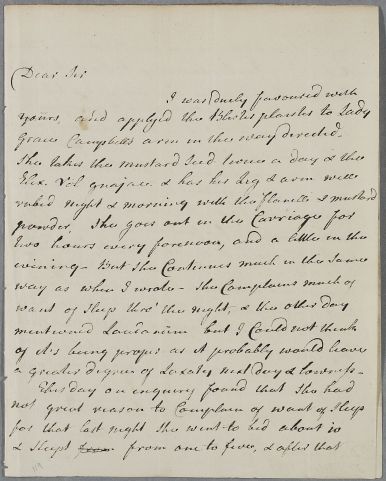 Dear Sir
I was duely favoured with
yours, and applyed the Blister plaister to Lady
Grace Campbells arm in the way directed.
She takes the mustard Seed twice a day & the
Elix. Vol guajac. & has his Leg & arm well
rubed night & morning with the flannels & mustard
powder, She goes out in the Carriage for
two hours every forenoon, and a little in the
evining - But she Continues much in the same
way as when I wrote - She Complains much of
want of Sleep thro' the night, & the other day
mentioned Laudanum but I Could not think
of it's being proper as it probably would leave
a greater degree of next day & lowness -
This day on enquiry found that She had
not great reason to Complain of want of Sleep
for that last night She went to bed about 10
& Slept from from one to five, & after that